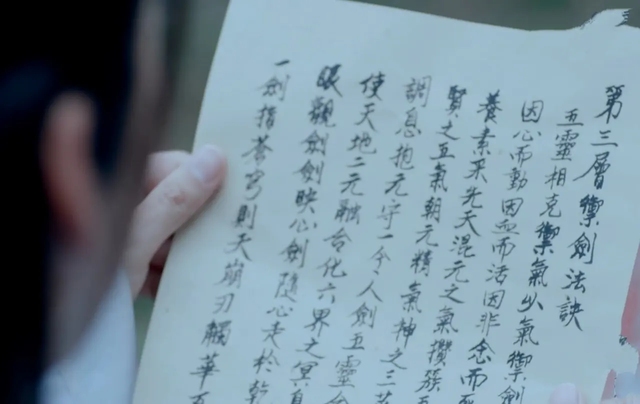 第三層禦劍法訣
五靈相克禦氣以氣禦劍
因心而動因血而活因非念而死
養素采先天混元之氣攢簇五
賢之五氣朝元精氣神之三花
調息抱元守一令人劍五靈合
使天地二元融合化六界之冥真
眼觀劍劍映心劍隨心走於乾
一劍指蒼穹則天崩刃觸華